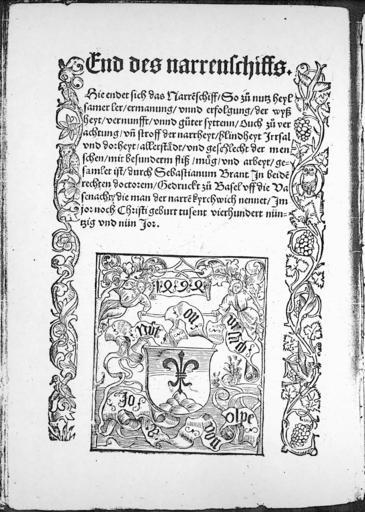 End des narrenschiffs.
Hie endet sich das Narrēschiff / So zů nutz heyl
samer ler / ermanung / vnnd erfolgung / der wyß
heyt / vernunfft / vnnd gůter sytten / Ouch zů ver
achtung / vn̄ stroff der narrheyt / blindheyt Irrsal
vnd dorheyt / aller städt / vnd geschlecht der men
schen / mit besunderm fliß / můg / vnd arbeyt / ge-
samlet ist / durch Sebastianum Brant In beidē
rechten doctorem / Gedruckt zů Basel vff die Va
senacht / die man der narrē kyrchwich nennet / Im
jor noch Christi geburt tusent vierhundert nün-
tzig vnd nün Jor.
Nüt
on
vrsach
Jo.
B.
von
olpe